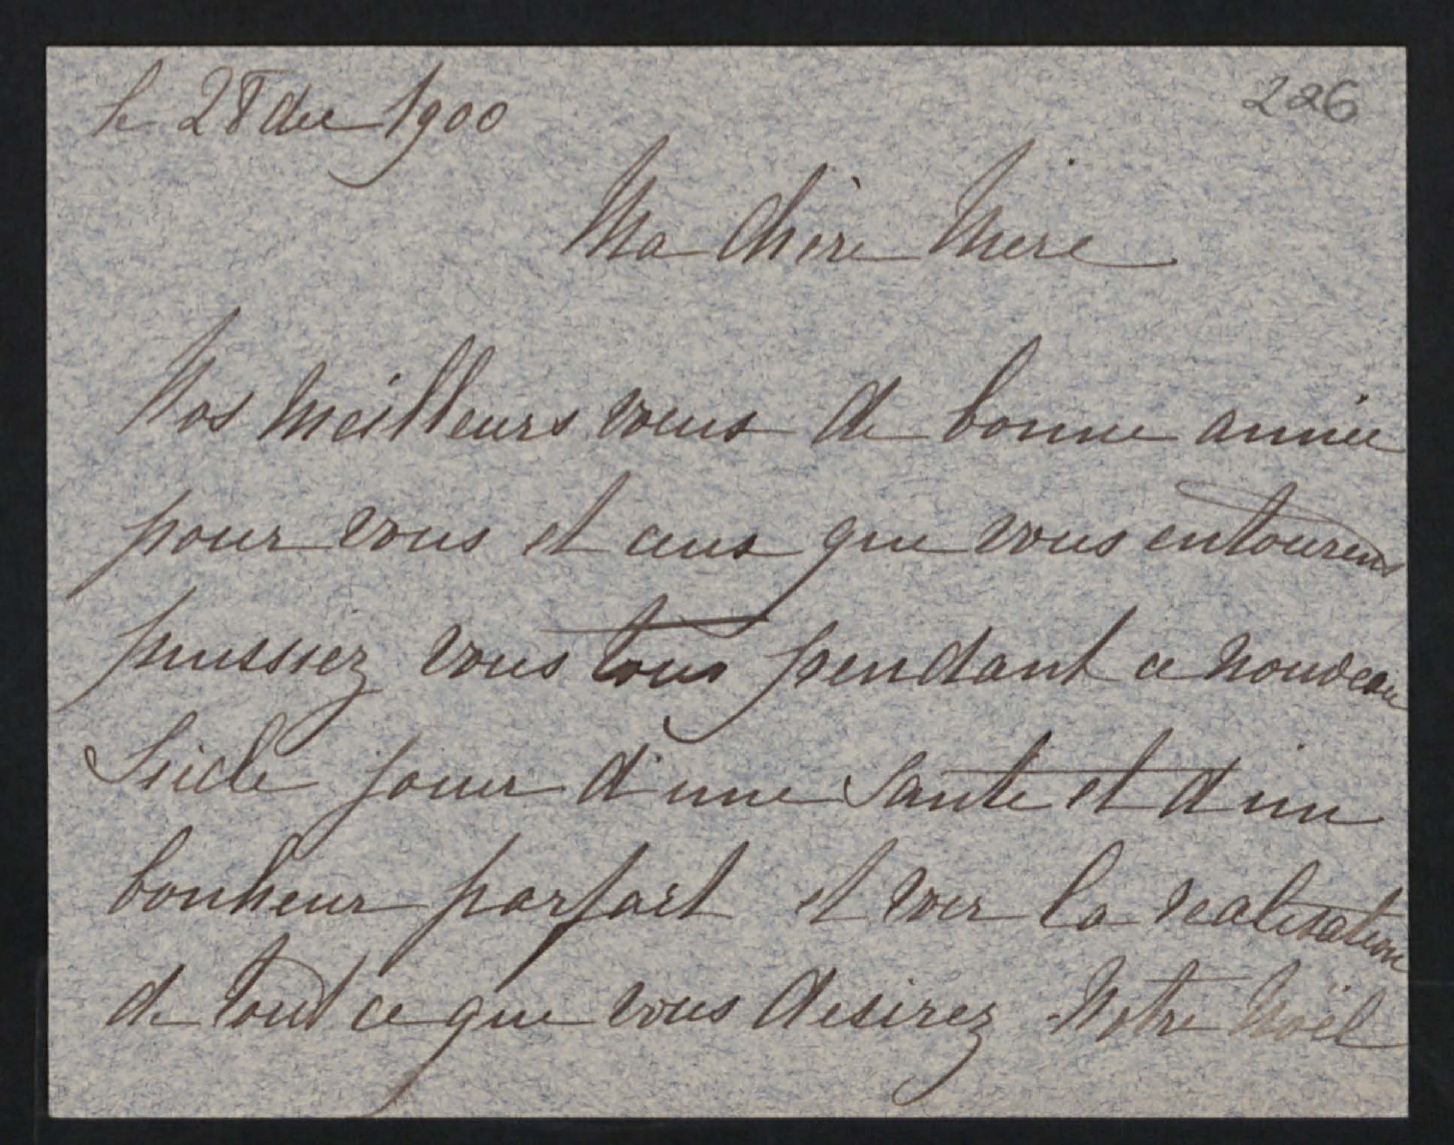 le 28 dec 1900
226
Ma chère Mère
Nos meilleurs voeux de bonne année
pour vous et ceux que vous entourent
puissiez vous tous pendant ce nouveau
Siècle jouir d'une Santé et d'un
bonheur parfait et voir la realisation
de tout ce que vous desirez Notre Noël